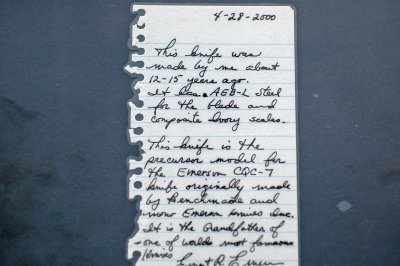 4-28-2000
This knife was
made by me about
12-15 years ago.
It has AEB-L steel
for the blade and
composite Ivory scales.
This knife is the
precursor model for
the Emerson CQC-7
knife originally made
by Benchmade and
now Emerson Knives Inc.
It is the Grandfather of
one of worlds most famous
knives
Ernest R. Emerson